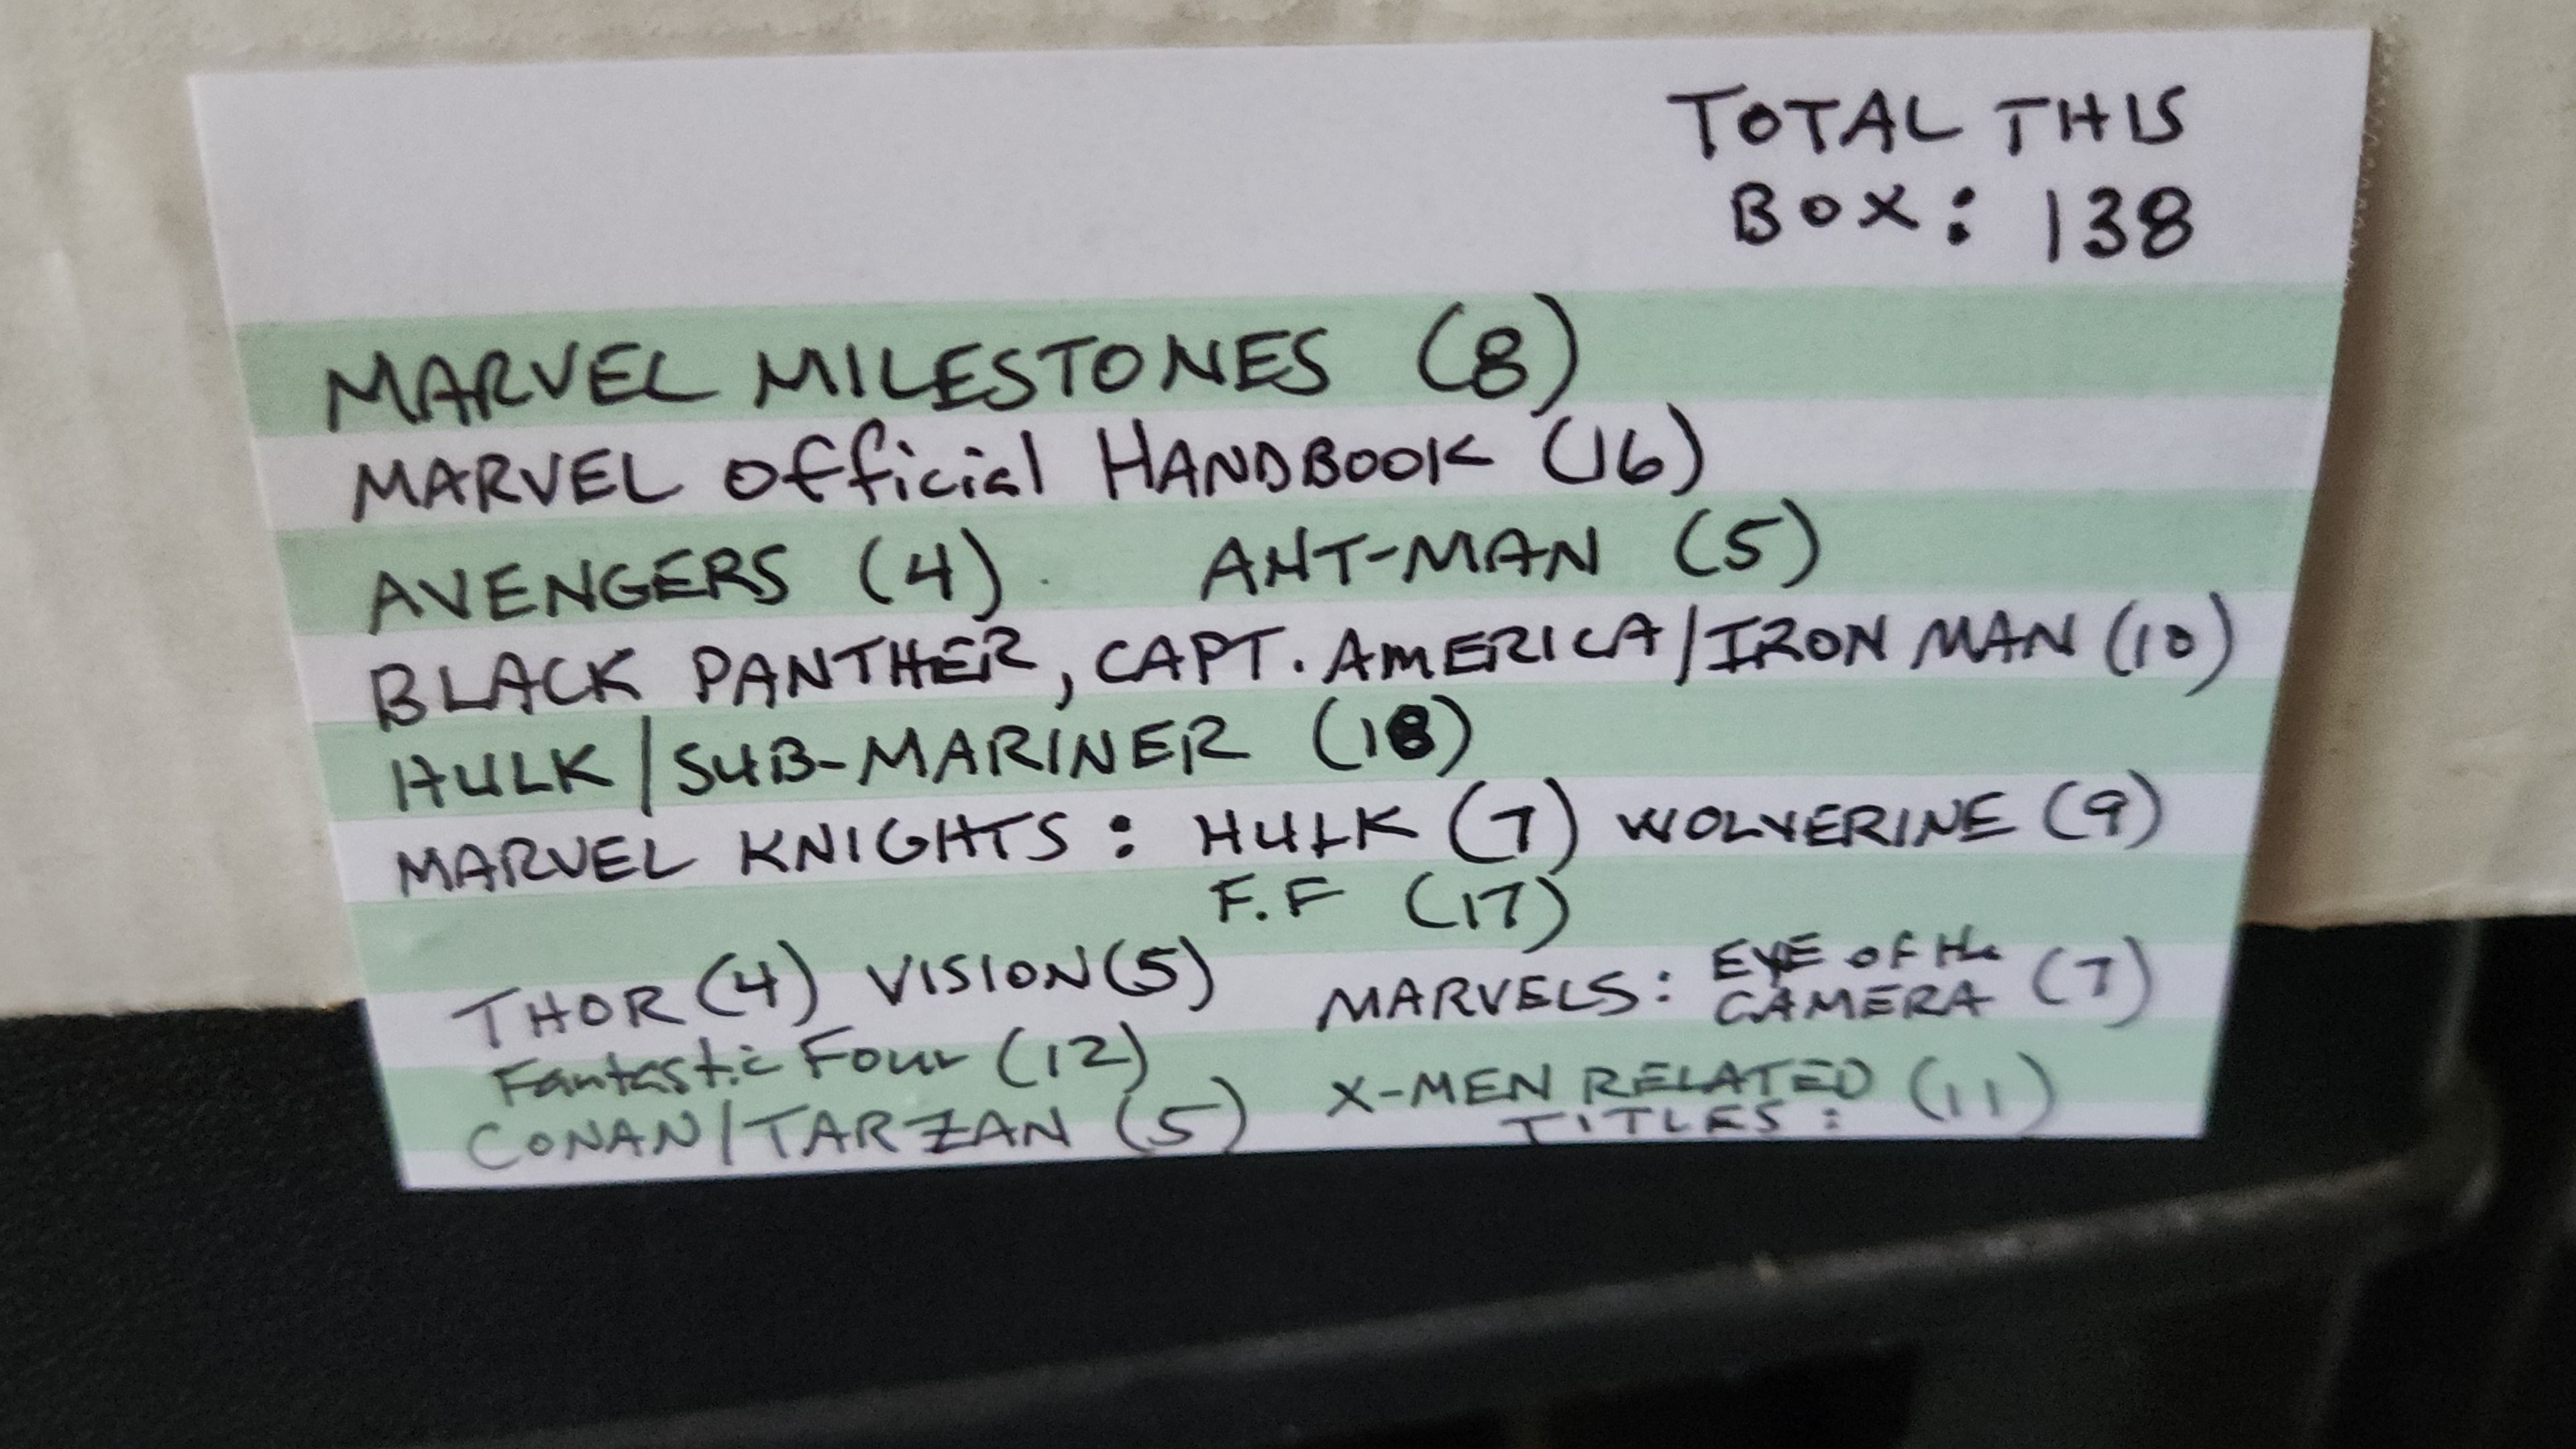 TOTAL THIS
BOX: 138
MARVEL MILESTONES (8)
MARVEL Official HANDBOOK (16)
AVENGERS (4) ANT-MAN (5)
BLACK PANTHER, CAPT. AMERICA/IRON MAN (10)
HULK/SUB-MARINER (18)
MARVEL KNIGHTS: HULK (7) WOLVERINE (9)
F.F (17)
THOR (4) VISION (5) MARVELS: EYE OF the
CAMERA (7)
Fantastic Four (12) X-MEN RELATED (11)
TITLES:
CONAN/TARZAN (5)